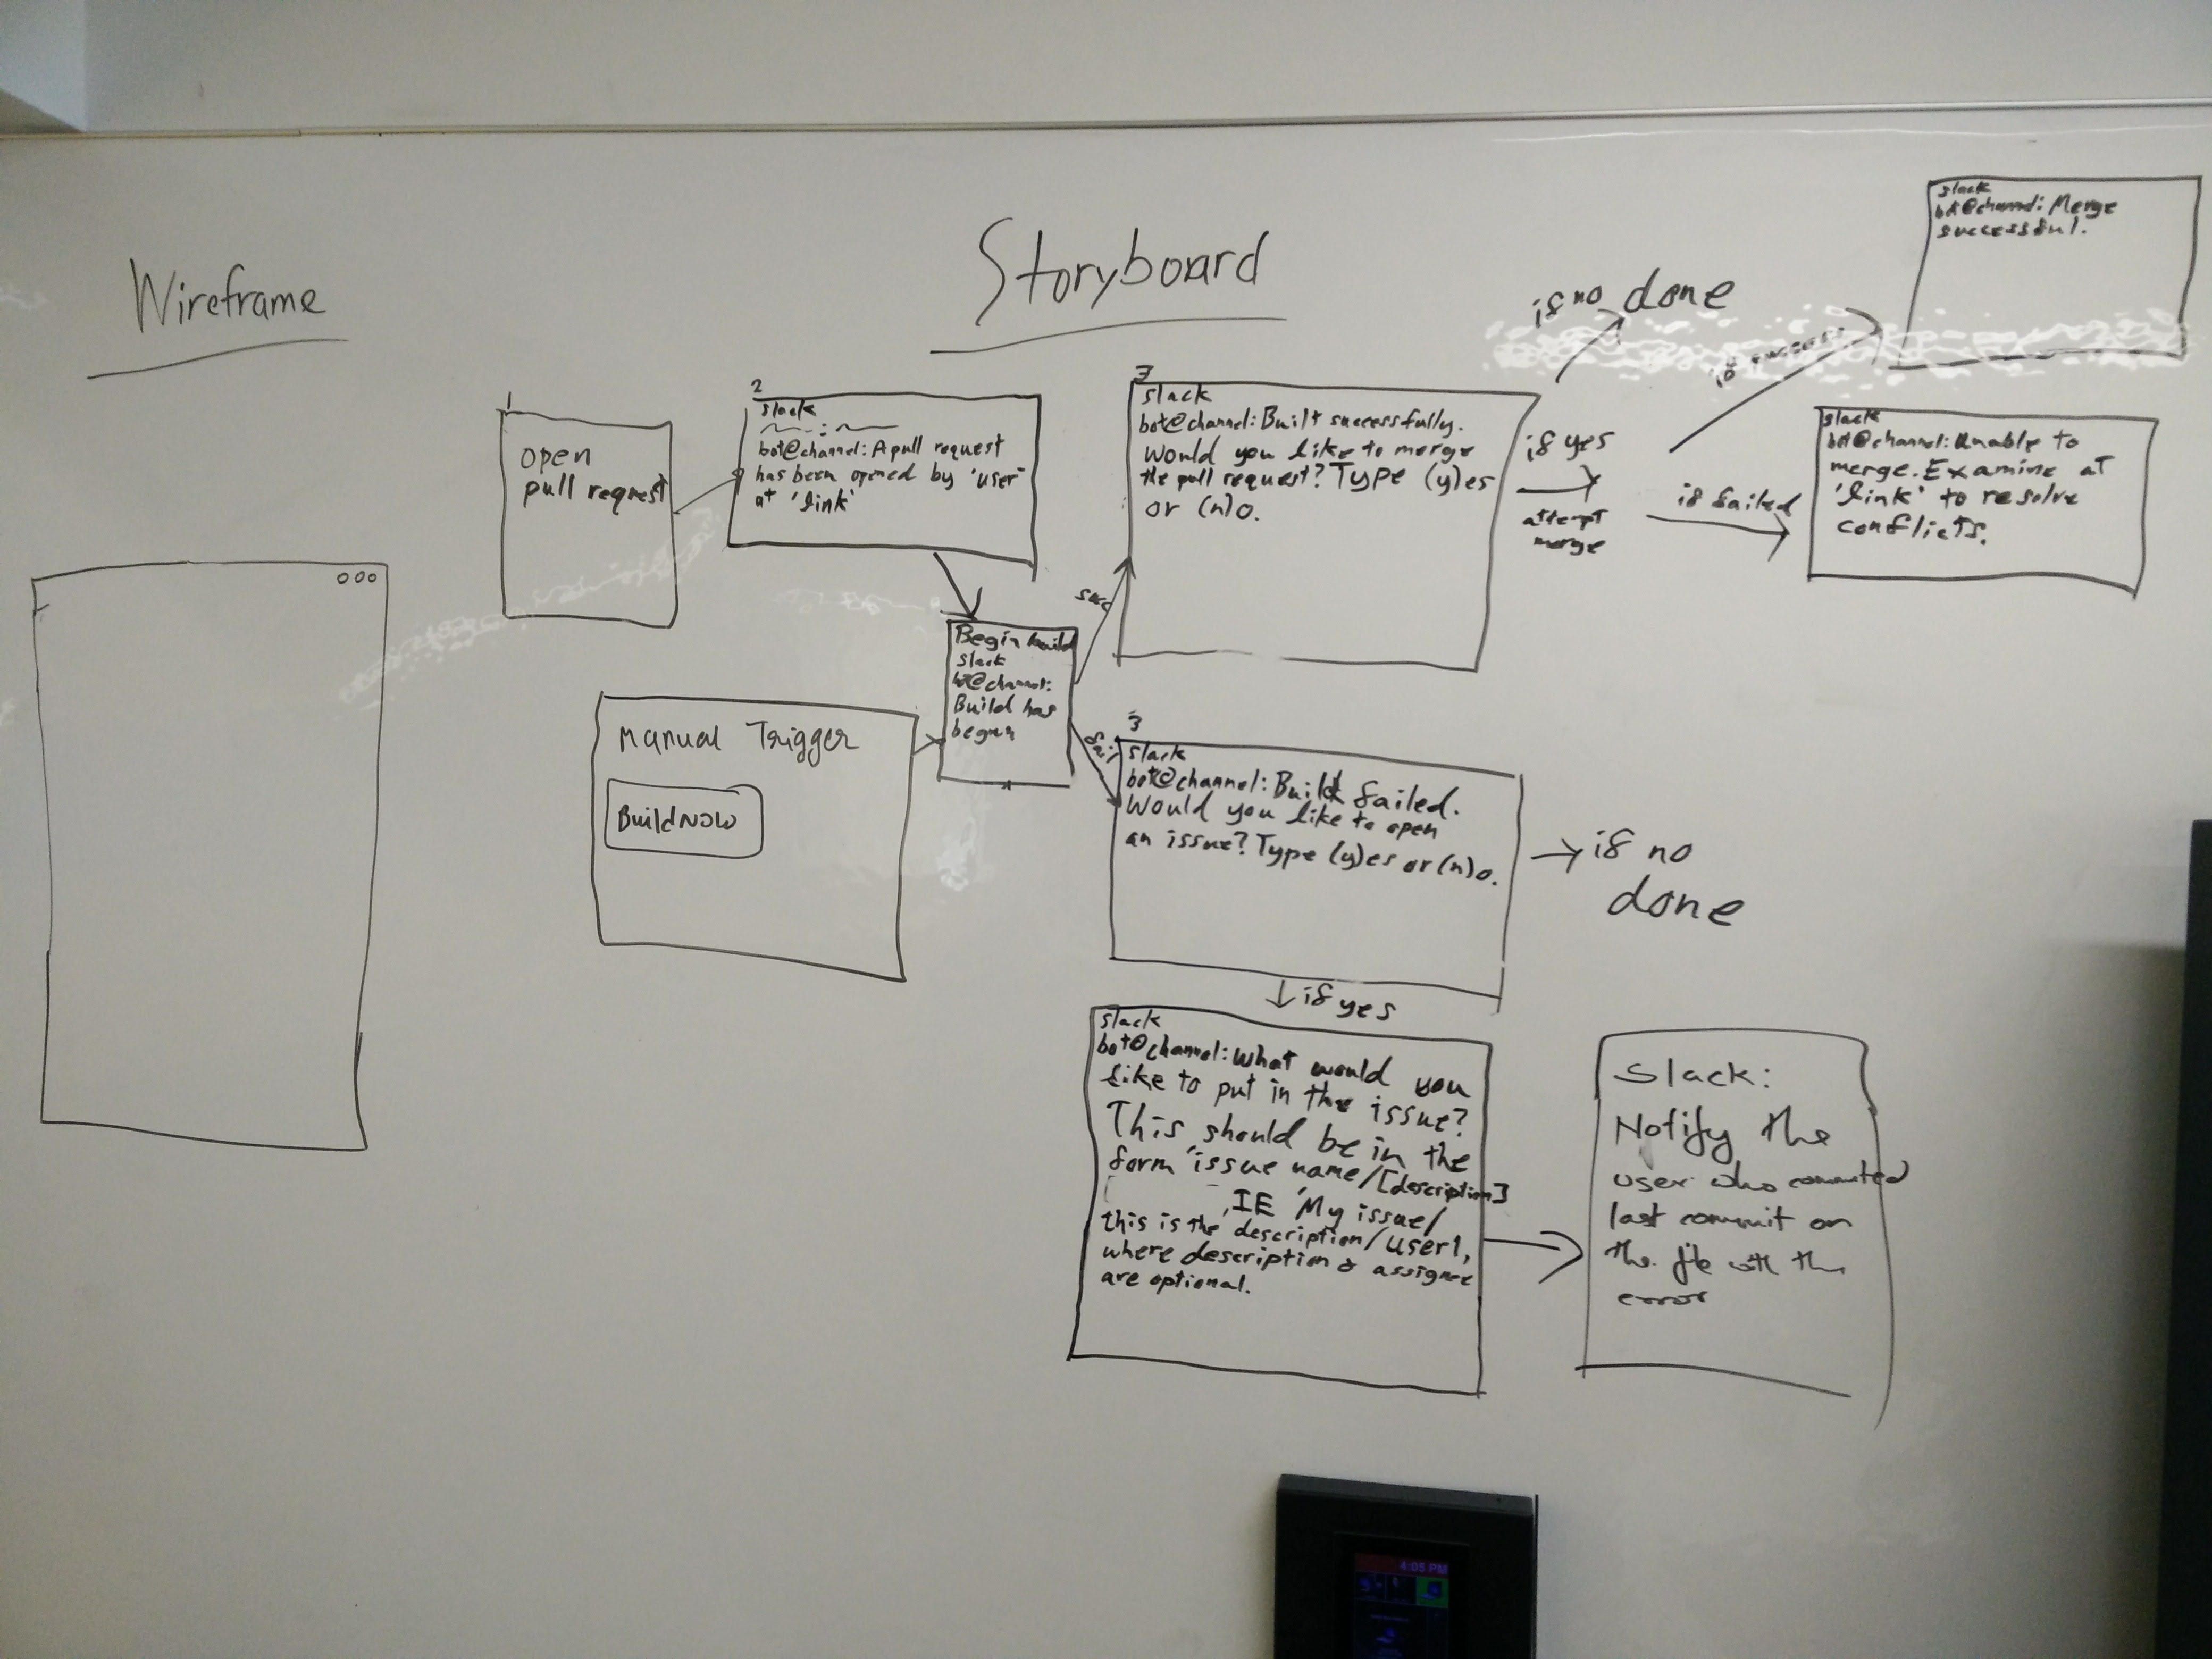 Wireframe
Storyboard
1
open
pull request
2
slack
bot@channel: A pull request
has been opened by 'user'
at 'link'
Begin build
slack
bot@channel:
Build has
begun
Manual Trigger
Build Now
succ
fail
3
slack
bot@channel: Built successfully.
Would you like to merge
the pull request? Type (y)es
or (n)o.
if no done
if yes
attempt
merge
if success
slack
bot@channel: Merge
successful.
if failed
slack
bot@channel: Unable to
merge. Examine at
'link' to resolve
conflicts.
3
slack
bot@channel: Build failed.
Would you like to open
an issue? Type (y)es or (n)o.
if no
done
if yes
slack
bot@channel: What would you
like to put in the issue?
This should be in the
form 'issue name/[description]
IE 'My issue/
this is the description/user1,
where description & assignee
are optional.
Slack:
Notify the
user who commited
last commit on
the file with the
error
4:05 PM